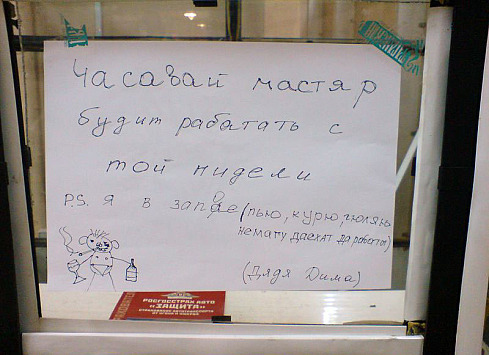 Часавай мастяр
будит рабатать с
той нидели
P.S. Я в запое (пью, курю, гюляю
немагу даехат да работы)
(Дядя Дима)
РОСГОССТРАХ АВТО
"ЗАЩИТА"